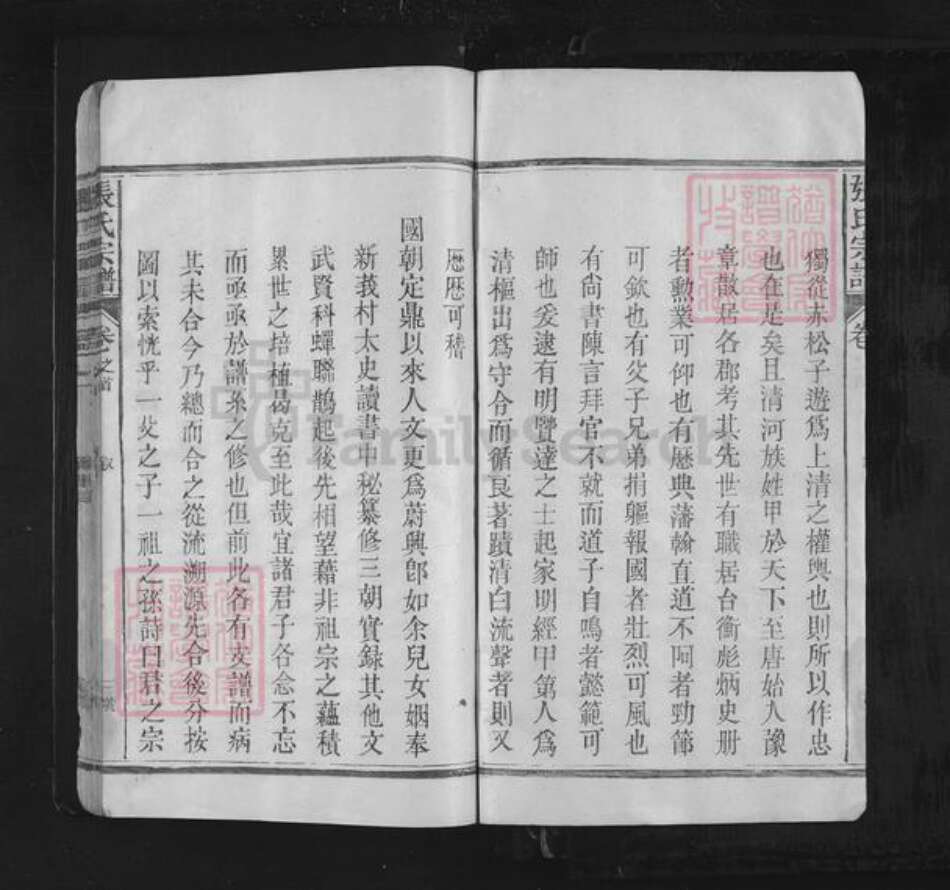 張氏宗譜 卷
獨從赤松子遊爲上清之權輿也則所以作忠
也在是矣且清河族姓甲於天下至唐始人豫
章散居各郡考其先世有職居台衡彪炳史册
者勲業可仰也有歷典藩翰直道不阿者勁節
可欽也有父子兄弟捐軀報國者壯烈可風也
有尙書陳言拜官不就而道子自鳴者懿範可
師也爰逮有明賢達之士起家明經甲第人爲
清樞出爲守令而循良著蹟清白流聲者則又
歷歷可稽
國朝定鼎以來人文更爲蔚興卽如余兒女姻奉
新義村太史讀書中秘纂修三朝實録其他文
武賢科蟬聯鵲起後先相望藉非祖宗之蘊積
累世之培植曷克至此哉宜諸君子各念不忘
而亟亟於譜系之修也但前此各有支譜而病
其未合今乃總而合之從流溯源先合後分按
圖以索恍乎一父之子一祖之孫詩曰君之宗
張氏宗譜 卷之首 叙
FamilySearch